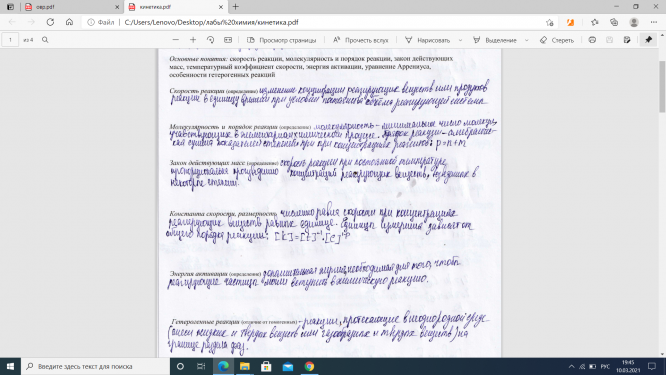 овр.pdf
кинетика.pdf
Файл
C:/Users/Lenovo/Desktop/лабы%20химия/кинетика.pdf
1 из 4
Просмотр страницы
Прочесть вслух
Нарисовать
Выделение
Стереть
Основные понятия: скорость реакции, молекулярность и порядок реакции, закон действующих
масс, температурный коэффициент скорости, энергия активации, уравнение Аррениуса,
особенности гетерогенных реакций
Скорость реакции (определение) изменение концентрации реагирующих веществ или продуктов
реакции в единицу времени при условии постоянства объёма реагирующей системы.
Молекулярность и порядок реакции (определение) молекулярность - минимальное число молекул,
участвующих в элементарном химическом процессе. Порядок реакции - алгебраичес-
кая сумма показателей степеней при концентрациях реагентов: p=n+m
Закон действующих масс (определение) скорость реакции при постоянной температуре
пропорциональна произведению концентраций реагирующих веществ, возведенных в
некоторые степени.
Константа скорости, размерность численно равна скорости при концентрациях
реагирующих веществ равных единице. Единица измерения зависит от
общего порядка реакции. [k]=[t]⁻¹·[c]
Энергия активации (определение) минимальная энергия, необходимая для того, чтобы
реагирующие частицы смогли вступить в химическую реакцию.
Гетерогенные реакции (отличия от гомогенных) - реакции, протекающие в неоднородной среде
(смеси жидких и твердых веществ или газообразных и твердых веществ) на
границе раздела фаз.
Введите здесь текст для поиска
РУС
19:45
10.03.2021